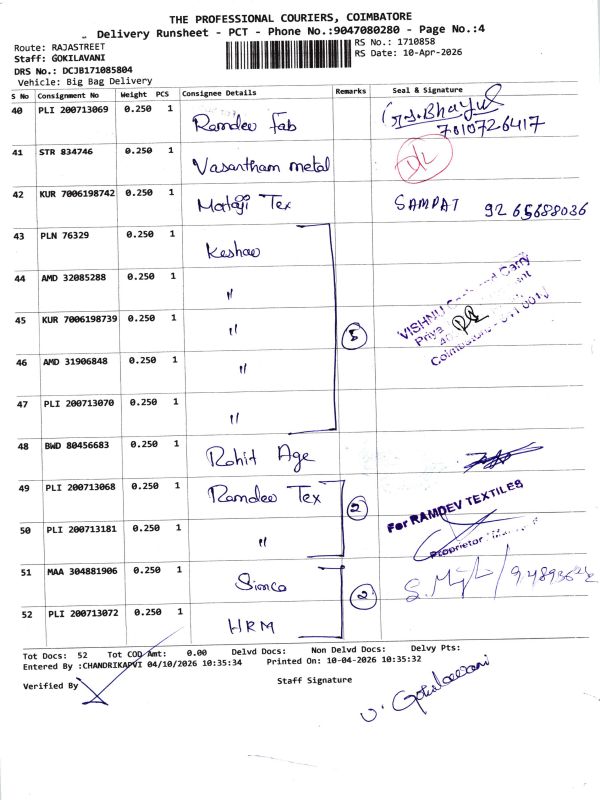 THE PROFESSIONAL COURIERS, COIMBATORE
Delivery Runsheet - PCT - Phone No.:9047080280 - Page No.:4
Route: RAJASTREET
RS No.: 1710858
Staff: GOKILAVANI
RS Date: 10-Apr-2026
DRS No.: DCJB171085804
Vehicle: Big Bag Delivery
S No Consignment No Weight PCS Consignee Details Remarks Seal & Signature
40 PLI 200713069 0.250 1 Ramdev Fab
7010726417
41 STR 834746 0.250 1 Vasantham metal
42 KUR 7006198742 0.250 1 Mataji Tex SAMPAT 9265688036
43 PLN 76329 0.250 1 Keshav
44 AMD 32085288 0.250 1 "
45 KUR 7006198739 0.250 1 " 5
VISHNU Cash and Carry
Priya
Coimbatore
46 AMD 31906848 0.250 1 "
47 PLI 200713070 0.250 1 "
48 BWD 80456683 0.250 1 Rohit Age
49 PLI 200713068 0.250 1 Ramdev Tex 2
For RAMDEV TEXTILES
50 PLI 200713181 0.250 1 "
Proprietor
51 MAA 304881906 0.250 1 Simco 2
52 PLI 200713072 0.250 1 HRM
Tot Docs: 52 Tot COD Amt: 0.00 Delvd Docs: Non Delvd Docs: Delvy Pts:
Entered By :CHANDRIKAPVI 04/10/2026 10:35:34 Printed On: 10-04-2026 10:35:32
Verified By Staff Signature
V. Gokilavani